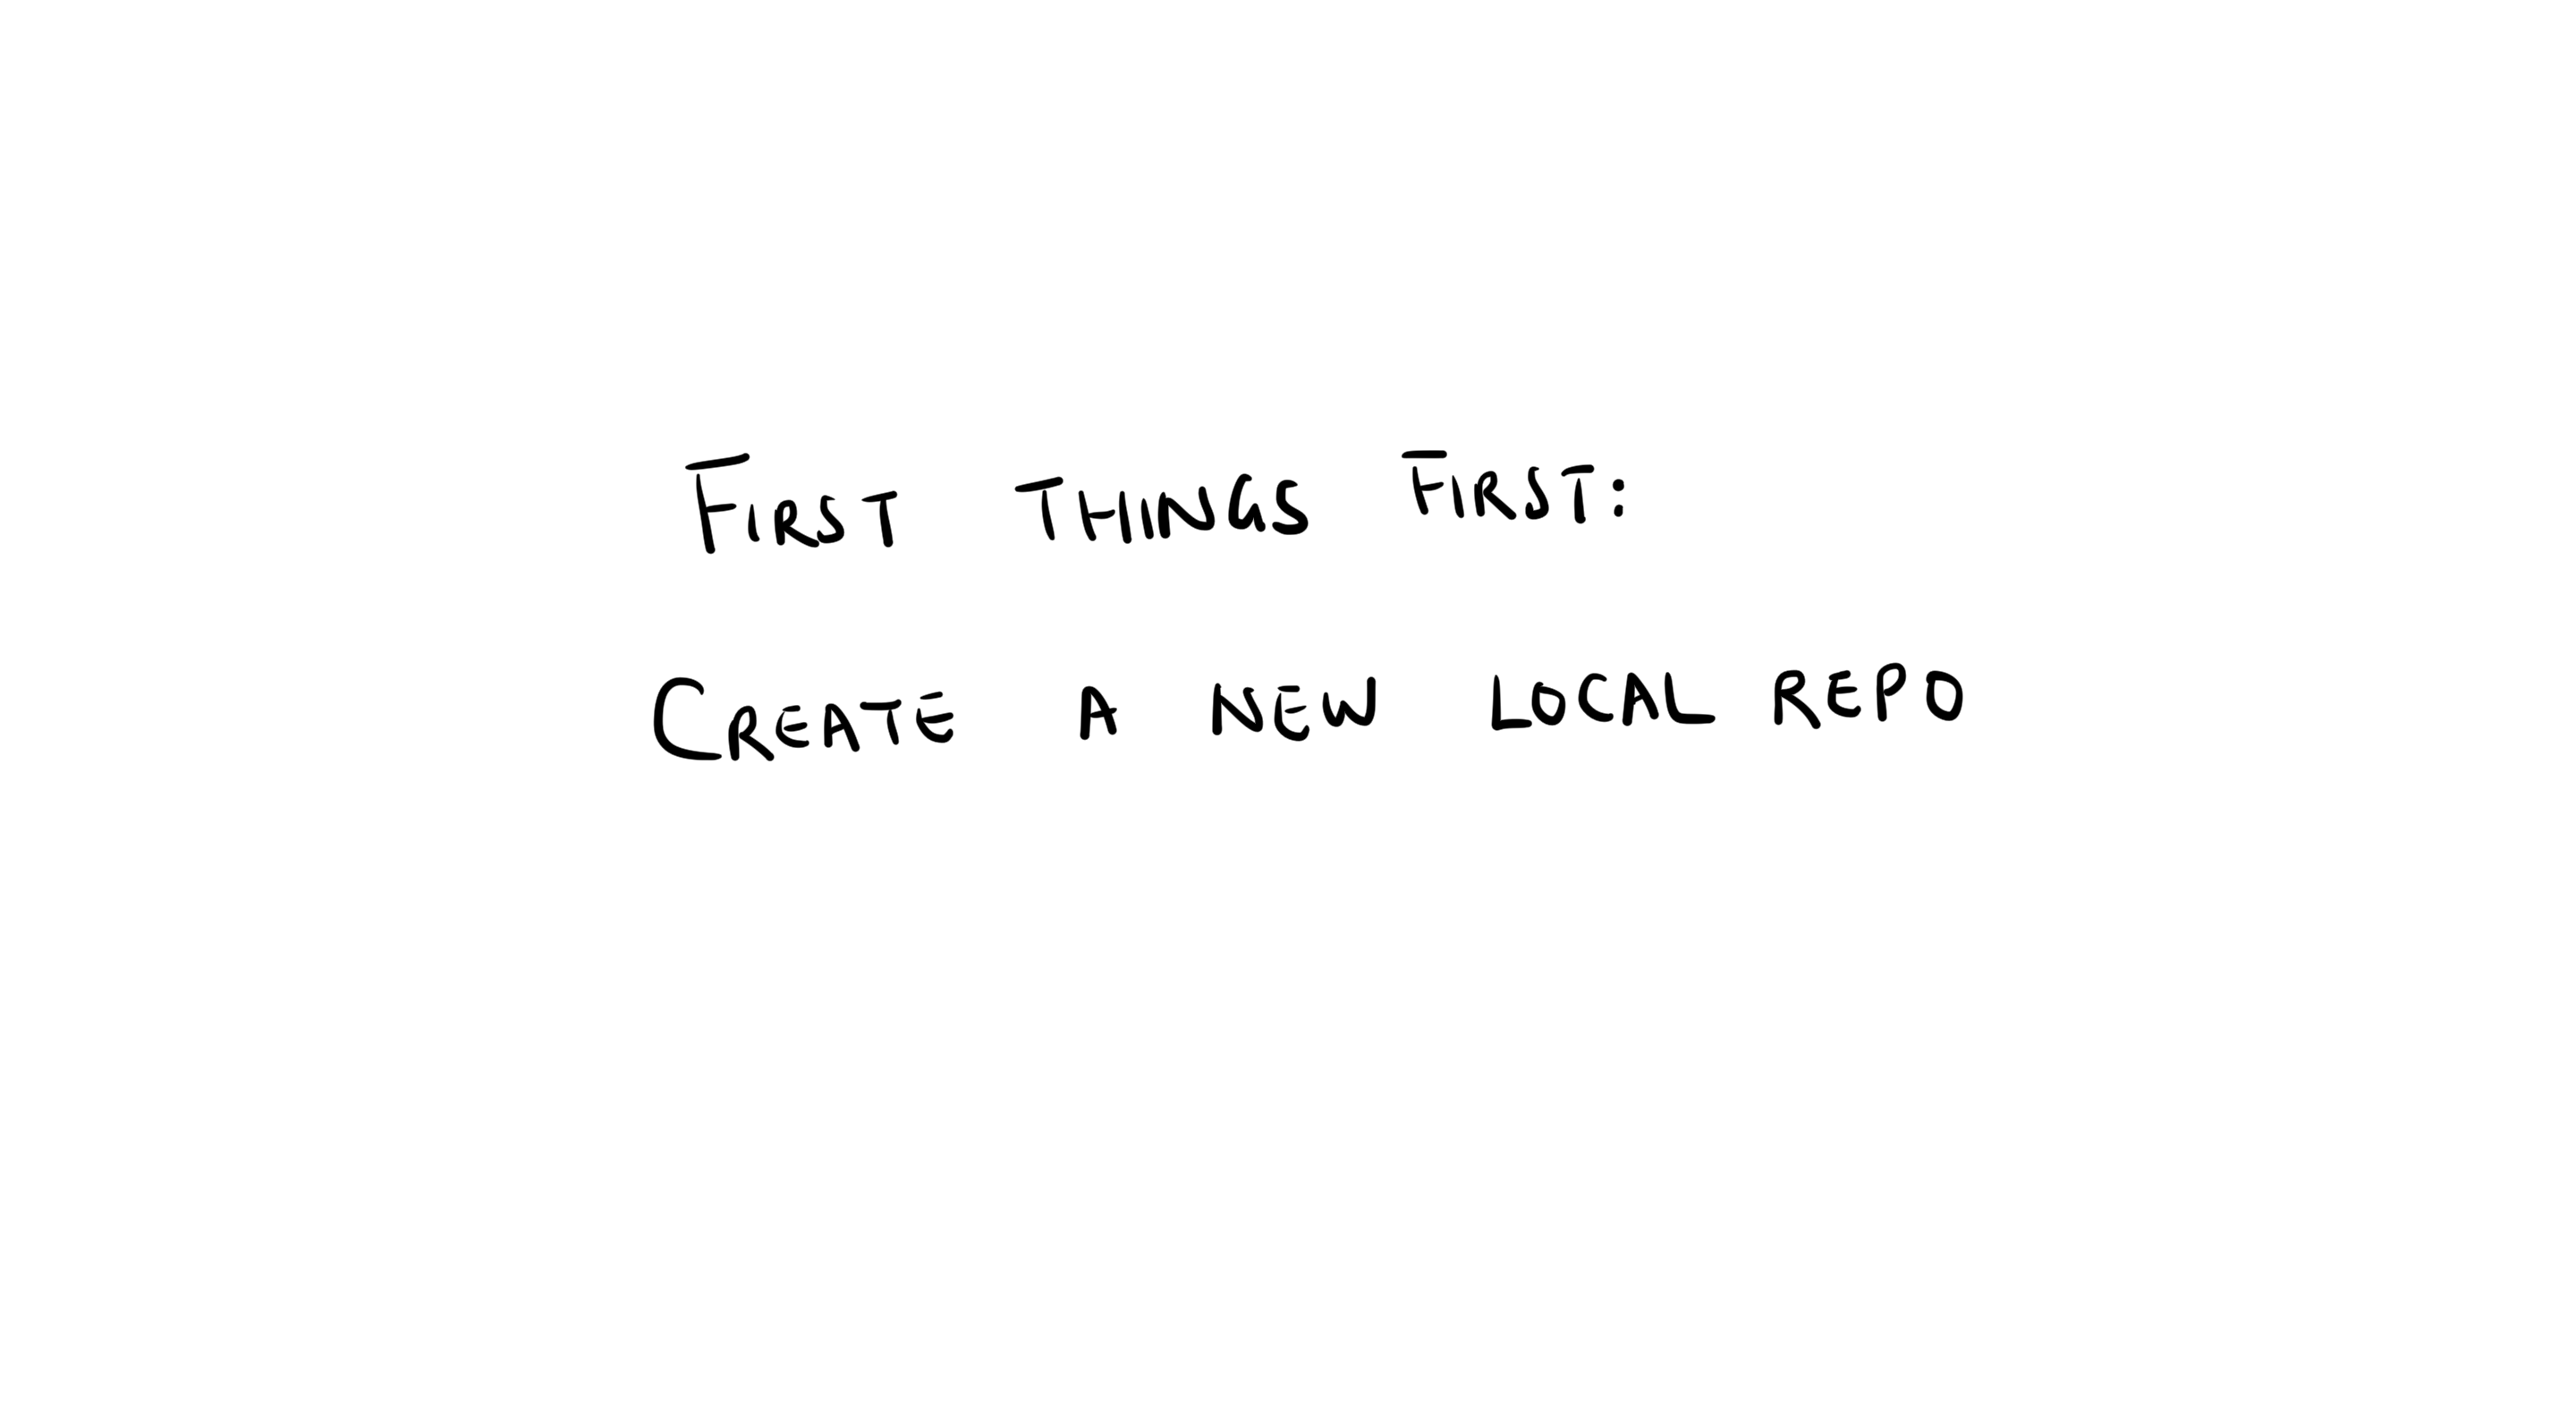 FIRST THINGS FIRST:
CREATE A NEW LOCAL REPO